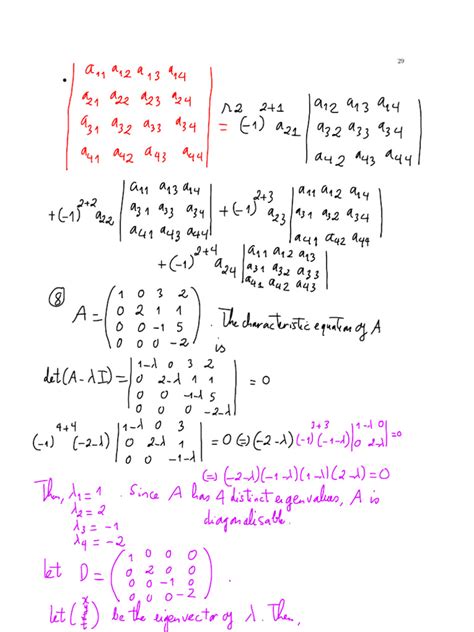 29
• | a11 a12 a13 a14 |
| a21 a22 a23 a24 |
| a31 a32 a33 a34 |
| a41 a42 a43 a44 | r2 = (-1)^2+1 a21 | a12 a13 a14 |
| a32 a33 a34 |
| a42 a43 a44 |
+(-1)^2+2 a22 | a11 a13 a14 |
| a31 a33 a34 |
| a41 a43 a44 | +(-1)^2+3 a23 | a11 a12 a14 |
| a31 a32 a34 |
| a41 a42 a44 |
+(-1)^2+4 a24 | a11 a12 a13 |
| a31 a32 a33 |
| a41 a42 a43 |
⑧ A = ( 1 0 3 2 )
( 0 2 1 1 )
( 0 0 -1 5 )
( 0 0 0 -2 ) . The characteristic equation of A
is
det(A-λI) = | 1-λ 0 3 2 |
| 0 2-λ 1 1 |
| 0 0 -1-λ 5 |
| 0 0 0 -2-λ | = 0
(-1)^4+4 (-2-λ) | 1-λ 0 3 |
| 0 2-λ 1 |
| 0 0 -1-λ | = 0 (=) (-2-λ)(-1)^3+3 (-1-λ) | 1-λ 0 |
| 0 2-λ | = 0
(=) (-2-λ)(-1-λ)(1-λ)(2-λ) = 0
Then, λ1 = 1 . Since A has 4 distinct eigenvalues, A is
λ2 = 2 diagonalisable.
λ3 = -1
λ4 = -2
let D = ( 1 0 0 0 )
( 0 2 0 0 )
( 0 0 -1 0 )
( 0 0 0 -2 ) .
let ( x y z t ) be the eigenvector of λ. Then,